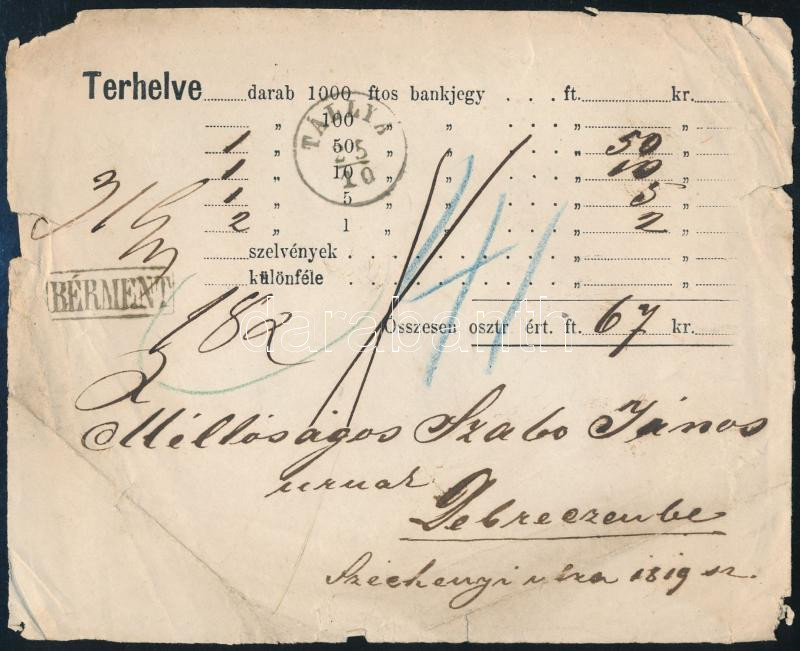 Terhelve ...... darab 1000 ftos bankjegy . . . ft. ............ kr. ......
„ 100 „ „ . . . „ „
1 „ 50 „ „ . . . „ 50 „
1 „ 10 „ „ . . . „ 10 „
1 „ 5 „ „ . . . „ 5 „
2 „ 1 „ „ . . . „ 2 „
szelvények . . . „ „
különféle . . . „ „
Összesen osztr ért. ft. 67 kr.
TÁLLYA
25
10
BÉRMENT
182
41
Méltóságos Szabo János
urnak
Debreczenbe
Széchenyi utza 1819 sz.
darabanth